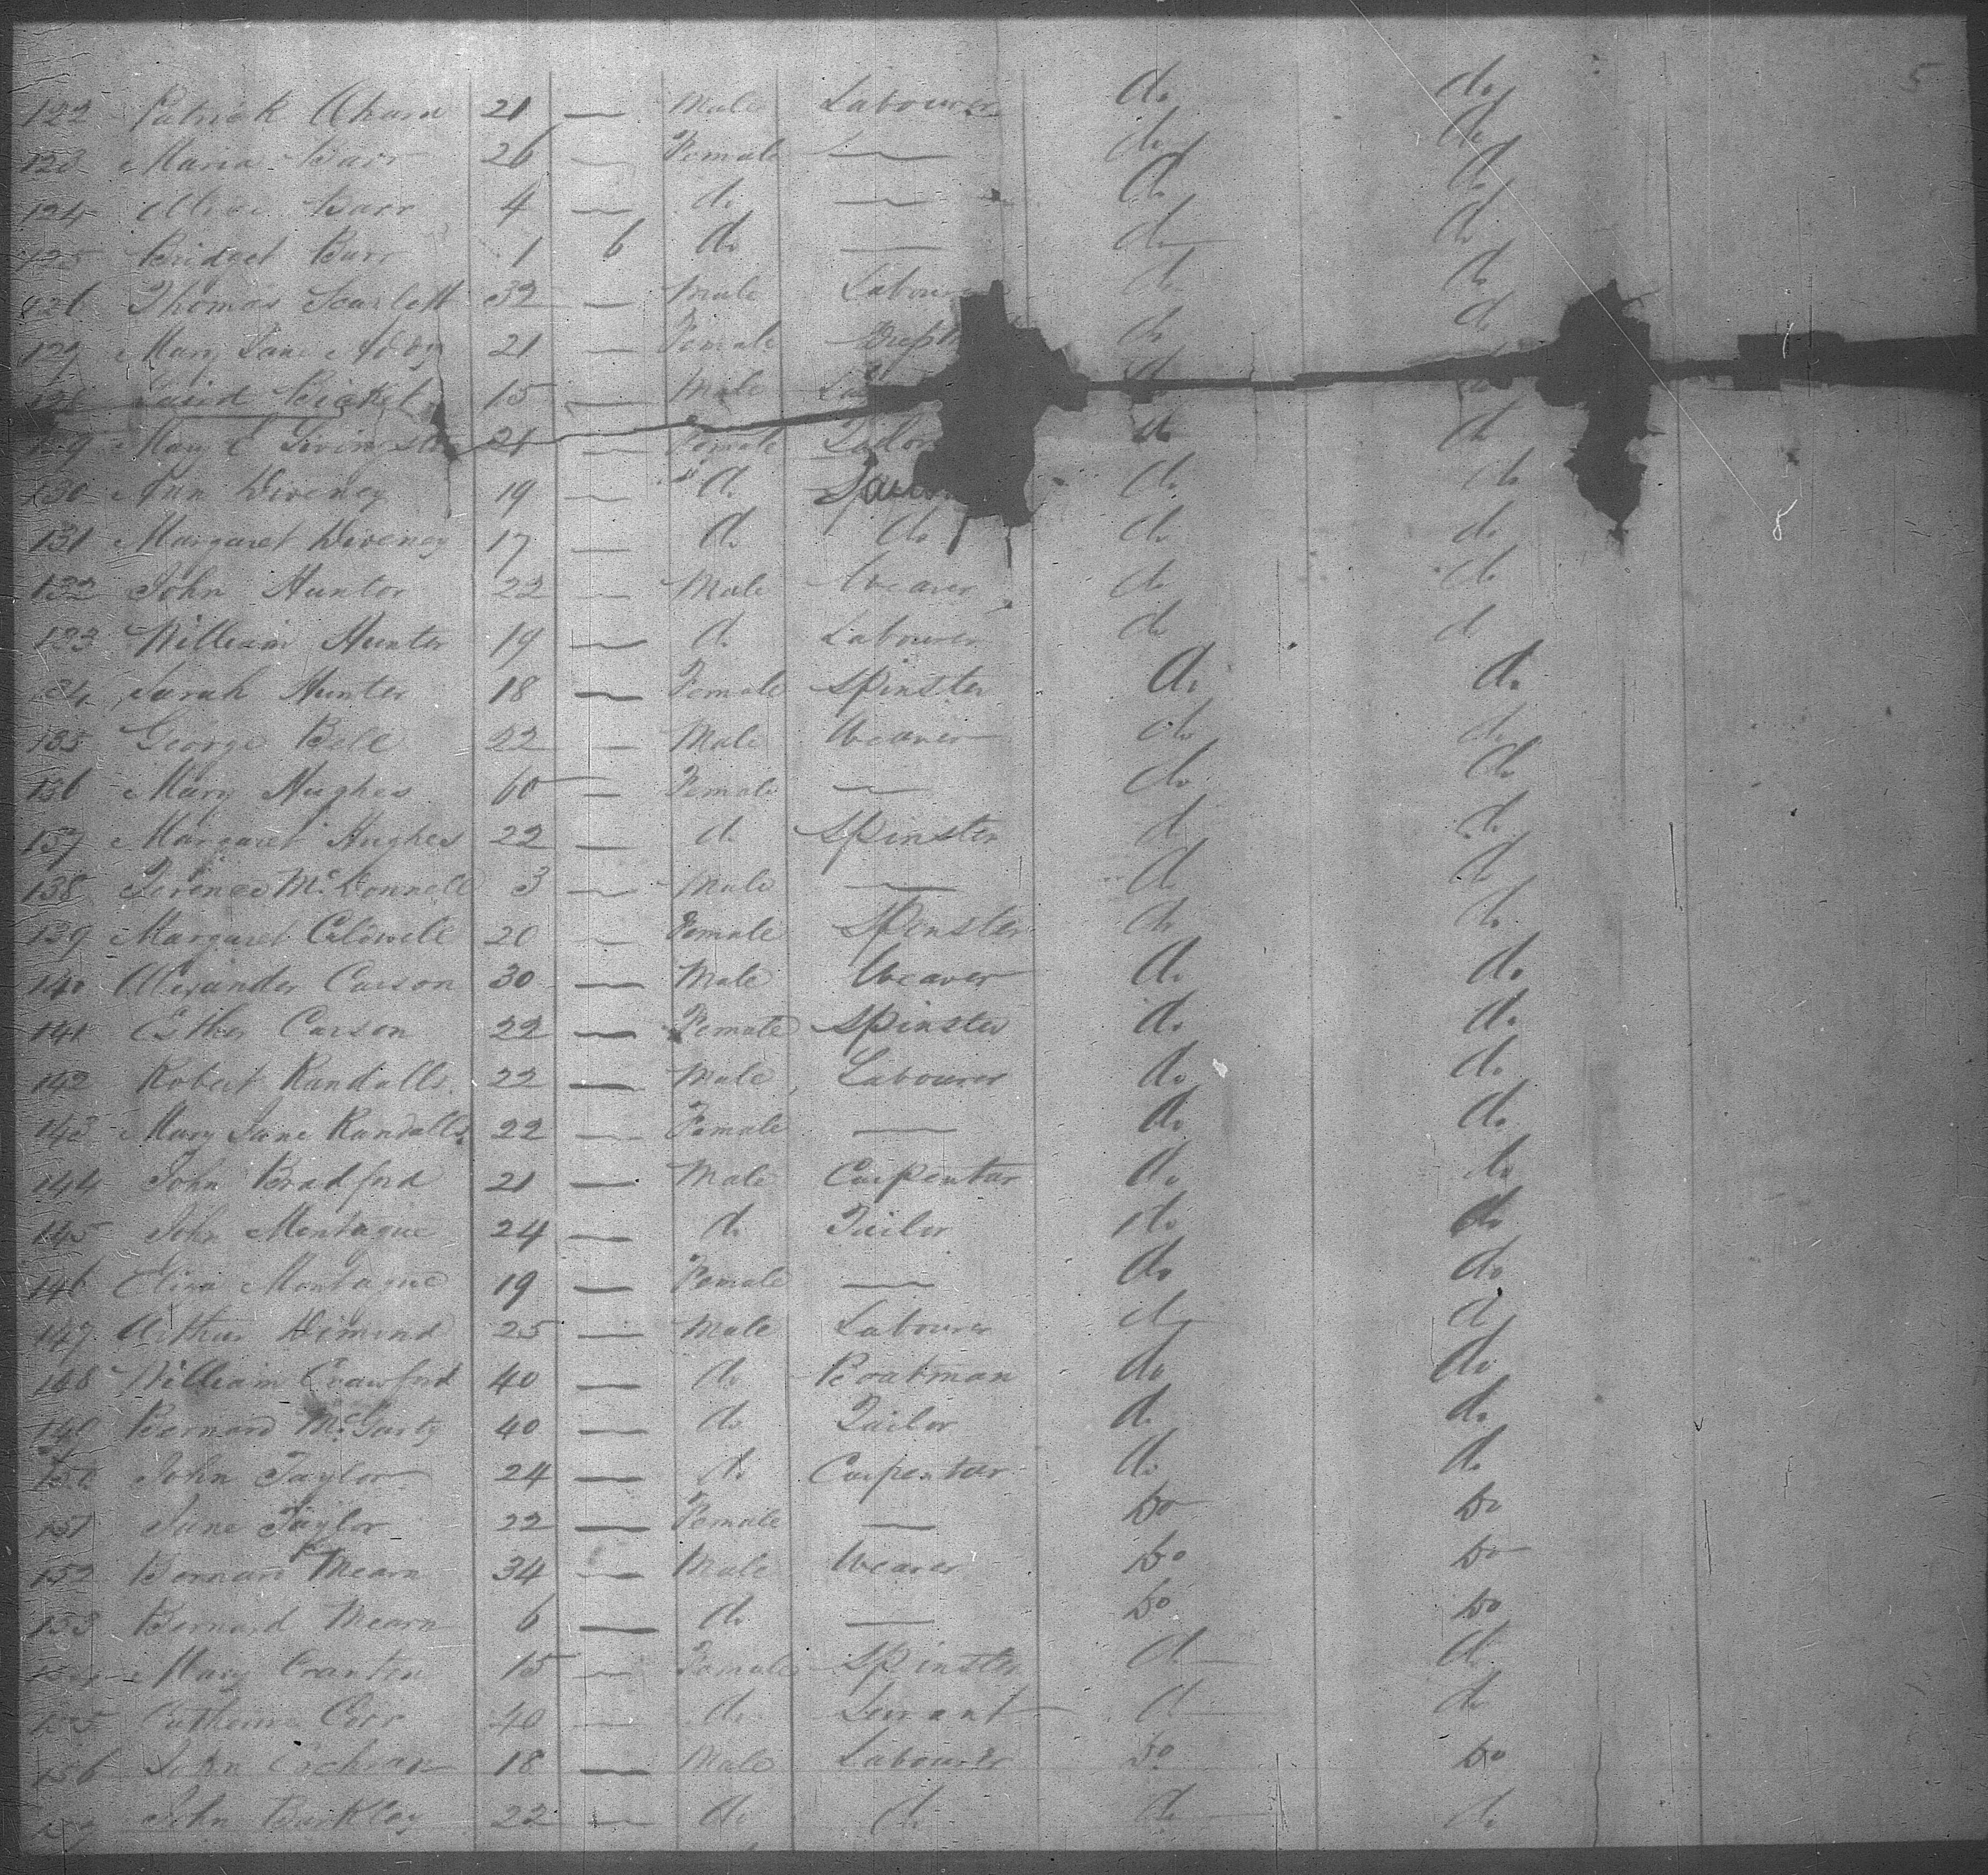 5
122 Patrick Aharn 21 — Male Labourer do do
123 Maria Barr 26 — Female — do do
124 Alice Barr 4 — do — do do
125 Bridget Barr 1 6 do — do do
126 Thomas Scarlett 32 — Male Labourer do do
127 Mary Jane 21 — Female do do
128 15 — Male do do
129 Mary E 21 — Female do do
130 Ann Diveney 19 — do do do
131 Margaret Diveney 17 — do do do do
132 John Hunter 22 — Male Weaver do do
133 William Hunter 19 — do Labourer do do
134 Sarah Hunter 18 — Female Spinster do do
135 George Bell 22 — Male Weaver do do
136 Mary Hughes 60 — Female — do do
137 Margaret Hughes 22 — do Spinster do do
138 Terence McDonnell 3 — Male — do do
139 Margaret Colwell 20 — Female Spinster do do
140 Alexander Carson 30 — Male Weaver do do
141 Esther Carson 22 — Female Spinster do do
142 Robert Randalls 22 — Male Labourer do do
143 Mary Jane Randalls 22 — Female — do do
144 John Bradford 21 — Male Carpenter do do
145 John Montague 24 — do Tailor do do
146 Eliza Montague 19 — Female — do do
147 Arthur Dimond 25 — Male Labourer do do
148 William Crawford 40 — do Boatman do do
149 Bernard McGarty 40 — do Tailor do do
150 John Taylor 24 — do Carpenter do do
151 Jane Taylor 22 — Female — Do Do
152 Bernard Mearn 34 — Male Weaver Do Do
153 Bernard Mearn 6 — do — Do Do
Mary 15 — Female Spinster do do
155 Catherine Corr 40 — do Servant do do
156 John Cochran 18 — Male Labourer Do Do
157 John Barkley 22 — do do do do